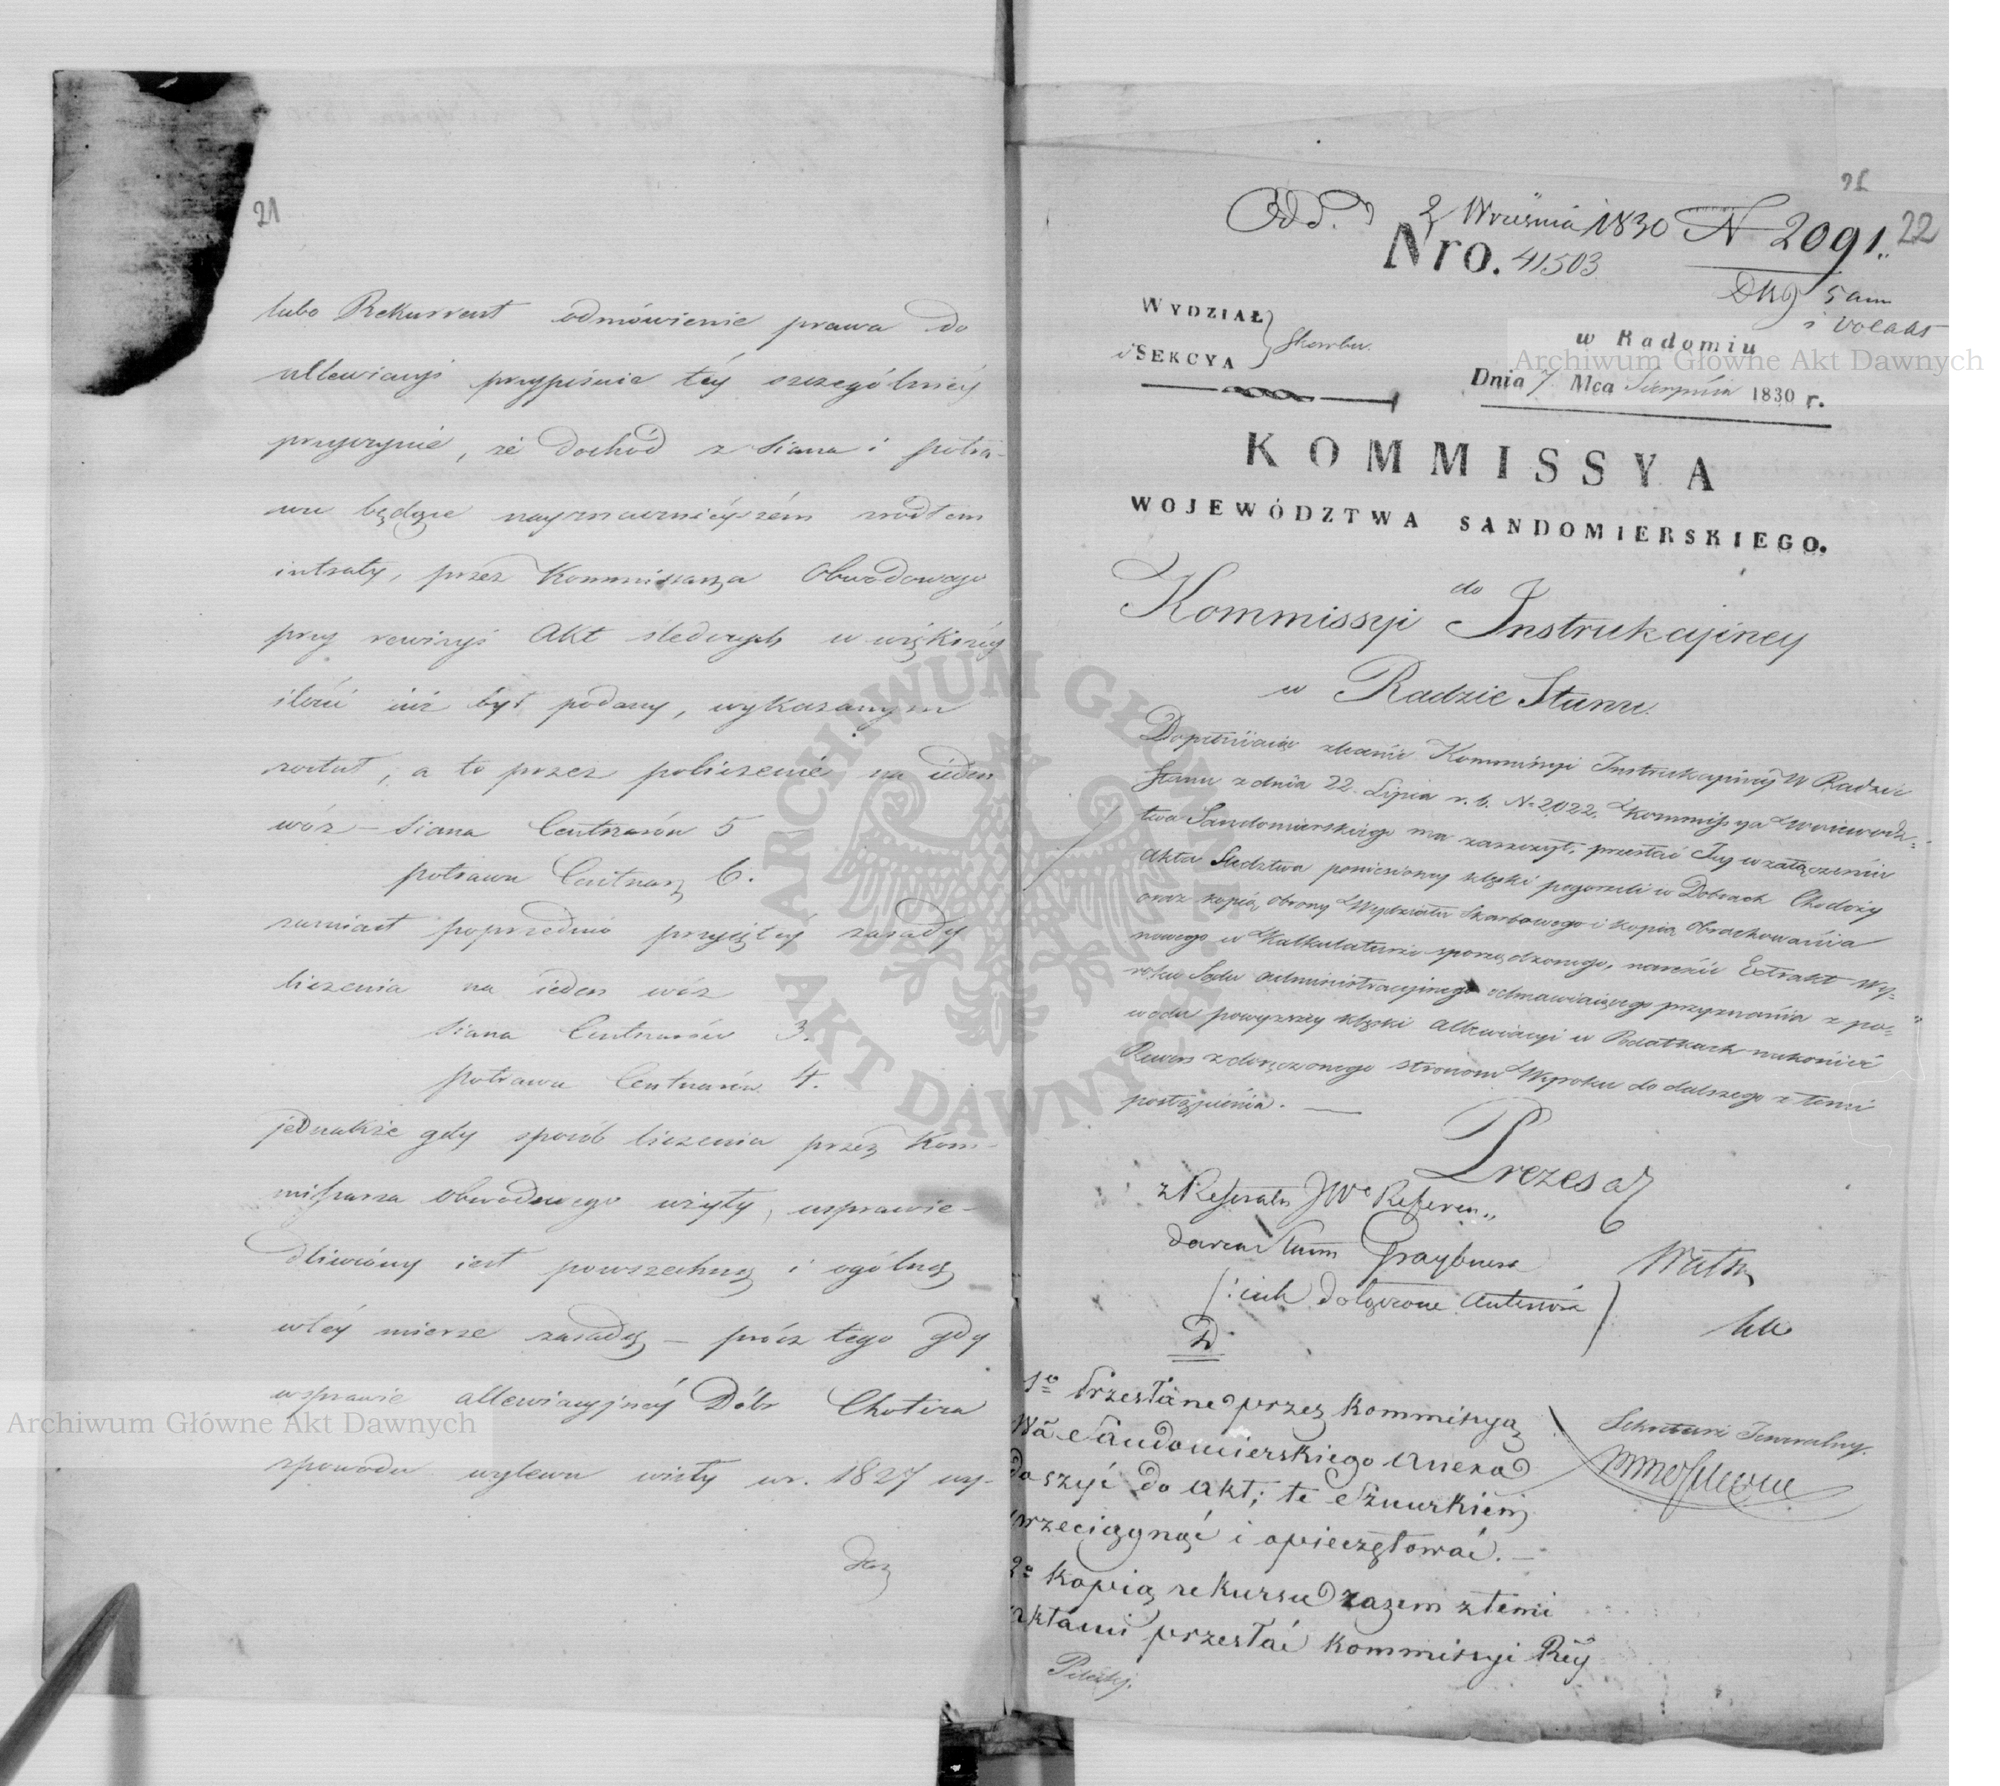 21
lubo Rekurrent odmówienie prawa do
allewiacyi przypisuie téy szczególnéy
przyczynie, że dochód z siana i potra-
wu będąc nayznacznieyszém zródłem
intraty, przez Kommissarza Obwodowego
przy rewizyi Akt śledczych w większéy
ilości iuż był podany, wykazanym
został, a to przez policzenie na ieden
wóz – siana Centnarów 5
potrawu Centnarz 6.
zamiast poprzednio przyiętéy zasady
liczenia na ieden wóz
siana Centnarów 3.
potrawu Centnarów 4.
jednakże gdy sposób liczenia przez Kom-
missarza obwodowego użyty, usprawie-
dliwiony iest powszechną i ogólną
wtéy mierze zasadą – prócz tego gdy
wsprawie allewiacyjnéy Dóbr Chotcza
zpowodu wylewu wisły w r. 1827 wy-
daż
22
Odd. d 2 Września 1830 N 2091.
Nro. 41503
WYDZIAŁ
i SEKCYA
Skarbu.
w Radomiu
Dnia 7 Mca Sierpnia 1830 r.
KOMMISSYA
WOJEWÓDZTWA SANDOMIERSKIEGO.
do
Kommissyi Instrukcyiney
w Radzie Stanu.
Dopełniaiąc zlecenie Kommissyi Instrukcyinéy w Radzie
Stanu z dnia 22. Lipca r. b. N. 2022. Kommissya Woiewodz-
twa Sandomierskiego ma zaszczyt przesłać Jey w załączeniu
Akta Śledztwa poniesioney klęski pogorzeli w Dobrach Chodczy
oraz kopią obrony Wydziału Skarbowego i kopią obrachowania
nowego w Kalkulaturze sporządzonego, nareście Extrakt Wy-
roku Sądu administracyinego odmawiaiącego przyznania z po-
wodu powyższey klęski Allewiacyi w Podatkach nakoniec
Rewers z doręczonego stronom Wyroku do dalszego z temi
postąpienia.
Prezes
z Referatu JWo Referen-
darza Stanu Graybnera
D
1o Przesłane przez Kommissyą
Wa Sandomierskiego Anexa
doszyć do akt; te sznurkiem
przeciągnąć i opieczętować. –
2o Kopią rekursu razem z temi
aktami przesłać Kommissyi Rzy
Sekretarz Jeneralny.
Archiwum Główne Akt Dawnych
Archiwum Główne Akt Dawnych
ARCHIWUM GŁÓWNE AKT DAWNYCH